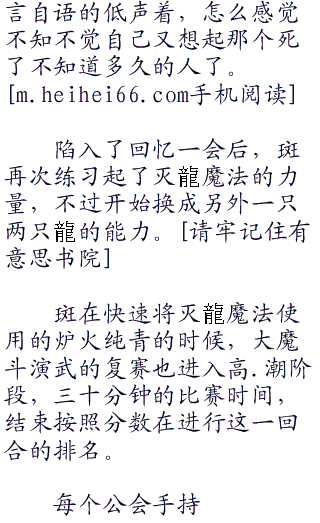 言自语的低声着，怎么感觉
不知不觉自己又想起那个死
了不知道多久的人了。
[m.heihei66.com手机阅读]
陷入了回忆一会后，斑
再次练习起了灭龍魔法的力
量，不过开始换成另外一只
两只龍的能力。[请牢记住有
意思书院]
斑在快速将灭龍魔法使
用的炉火纯青的时候，大魔
斗演武的复赛也进入高.潮阶
段，三十分钟的比赛时间，
结束按照分数在进行这一回
合的排名。
每个公会手持